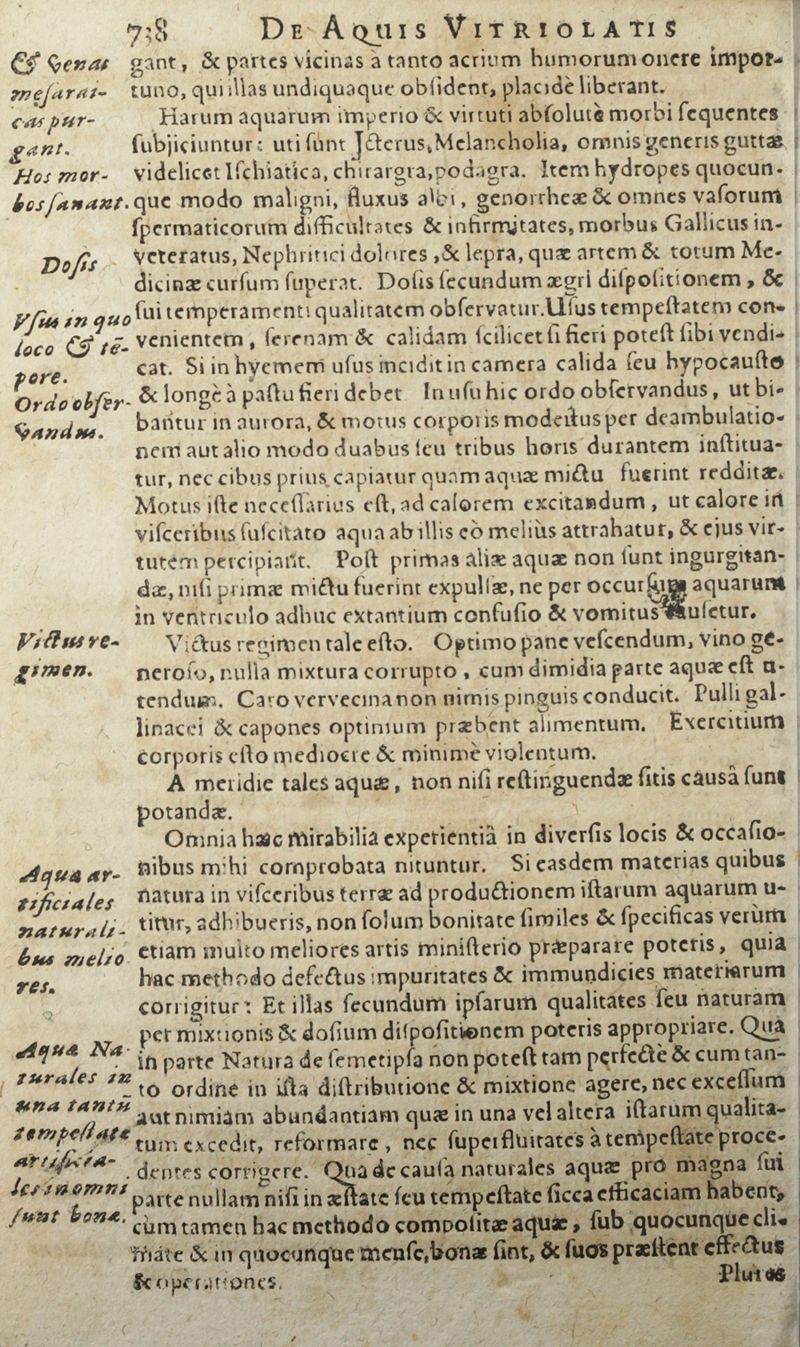 738 DE AQUIS VITRIOLATIS
& venas
mesarai-
cas pur-
gant.
gant, & partes vicinas à tanto acrium humorum onere impor-
tuno, qui illas undiquaque obſident, placidè liberant.
Harum aquarum imperio & virtuti abſolutè morbi ſequentes
ſubjiciuntur: uti ſunt Jcterus, Melancholia, omnis generis guttæ
Hos mor-
bos ſanant.
videlicet Iſchiatica, chirargra, podagra. Item hydropes quocun-
que modo maligni, fluxus albi, genorrheæ & omnes vaſorum
ſpermaticorum difficultates & infirmitates, morbus Gallicus in-
Doſis
veteratus, Nephritici dolores, & lepra, quæ artem & totum Me-
dicinæ curſum ſuperat. Doſis ſecundum ægri diſpoſitionem, &
Vſus in quo
loco & tē-
pore.
ſui temperamenti qualitatem obſervatur. Uſus tempeſtatem con-
venientem, ſerenam & calidam ſcilicet ſi fieri poteſt ſibi vendi-
cat. Si in hyemem uſus incidit in camera calida ſeu hypocauſto
Ordo obſer-
vandus.
& longè à paſtu fieri debet. In uſu hic ordo obſervandus, ut bi-
bantur in aurora, & motus corporis modestus per deambulatio-
nem aut alio modo duabus ſeu tribus horis durantem inſtitua-
tur, nec cibus prius capiatur quam aquæ mictu fuerint redditæ.
Motus iſte neceſſarius eſt, ad calorem excitandum, ut calore in
viſceribus ſuſcitato aqua ab illis eò meliùs attrahatur, & ejus vir-
tutem percipiant. Poſt primas aliæ aquæ non ſunt ingurgitan-
dæ, niſi primæ mictu fuerint expulſæ, ne per aquarum
in ventriculo adhuc extantium confuſio & vomitus
Victus re-
gimen.
Victus regimen tale eſto. Optimo pane veſcendum, vino ge-
neroſo, nulla mixtura corrupto, cum dimidia parte aquæ eſt u-
tendum. Caro vervecina non nimis pinguis conducit. Pulli gal-
linacei & capones optimum præbent alimentum. Exercitium
corporis eſto mediocre & minimè violentum.
A meridie tales aquæ, non niſi reſtinguendæ ſitis causâ ſunt
potandæ.
Omnia hæc mirabilia experientiâ in diverſis locis & occaſio-
Aqua ar-
tificiales
naturali-
bus melio
res.
nibus mihi comprobata nituntur. Si easdem materias quibus
natura in viſceribus terræ ad productionem iſtarum aquarum u-
titur, adhibueris, non ſolum bonitate ſimiles & ſpecificas verùm
etiam multo meliores artis miniſterio præparare poteris, quia
hac methodo defectus impuritates & immundicies materiarum
corrigitur: Et illas ſecundum ipſarum qualitates ſeu naturam
per mixtionis & doſium diſpoſitionem poteris appropriare. Quâ
Aqua Na-
turales in
una tantū
tempeſtate
artificia-
les in omni
ſunt bonæ.
in parte Natura de ſemetipſa non poteſt tam perfectè & cum tan-
to ordine in iſta diſtributione & mixtione agere, nec exceſſum
aut nimiam abundantiam quæ in una vel altera iſtarum qualita-
tum excedit, reformare, nec ſuperfluitates à tempeſtate proce-
dentes corrigere. Qua de cauſa naturales aquæ pro magna ſui
parte nullam niſi in æſtate ſeu tempeſtate ſicca efficaciam habent,
cùm tamen hac methodo compoſitæ aquæ, ſub quocunque cli-
mate & in quocunque menſe, bonæ ſint, & ſuos præſtent effectus
& operationes.